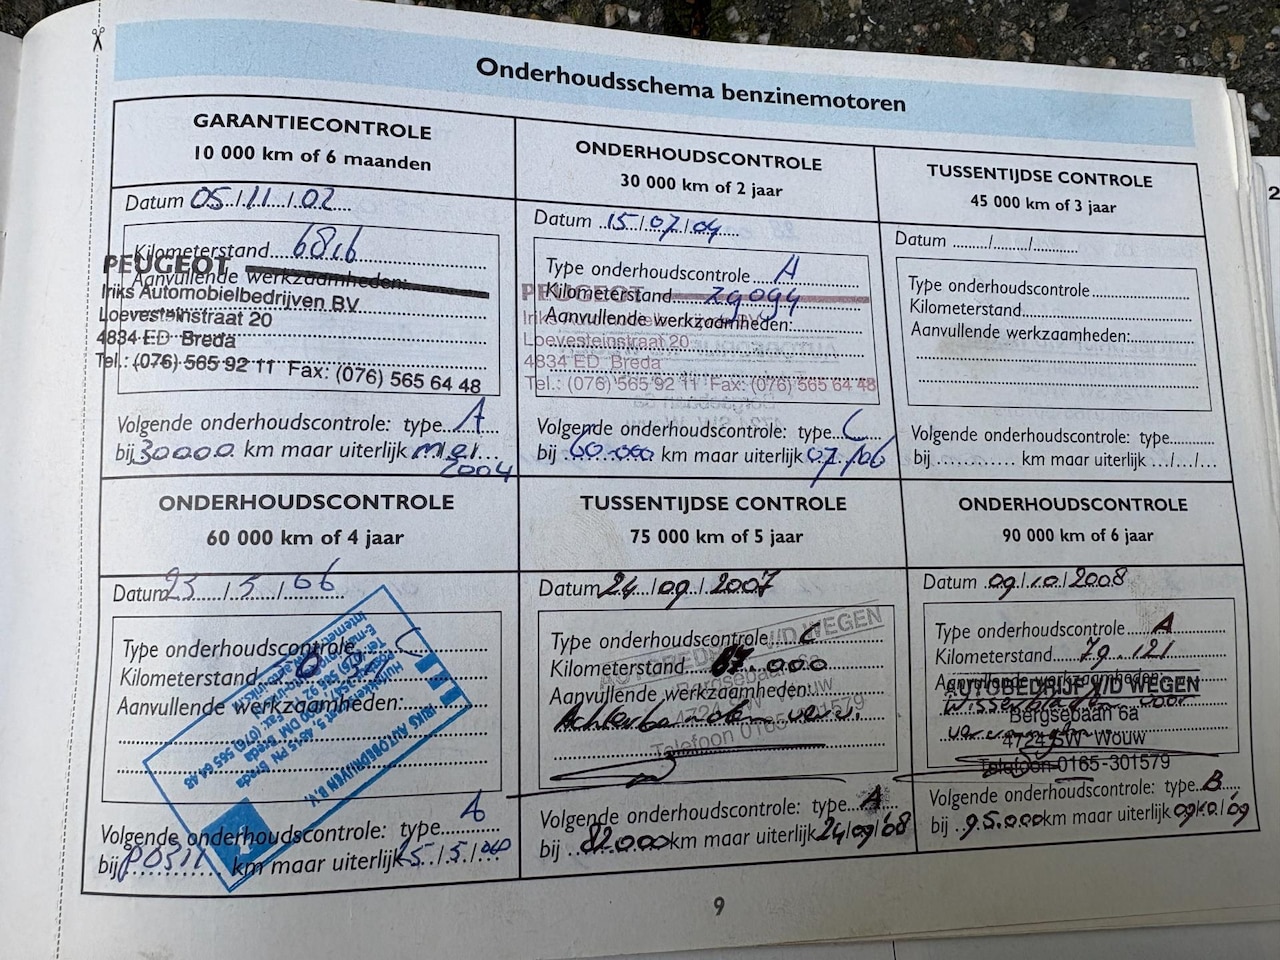 Onderhoudsschema benzinemotoren
GARANTIECONTROLE
10 000 km of 6 maanden
Datum 05/11/02
Kilometerstand 6816
Aanvullende werkzaamheden:
PEUGEOT
Iriks Automobielbedrijven BV
Loevesteinstraat 20
4834 ED Breda
Tel.: (076) 565 92 11 Fax: (076) 565 64 48
Volgende onderhoudscontrole: type A
bij 30000 km maar uiterlijk mei
2004
ONDERHOUDSCONTROLE
30 000 km of 2 jaar
Datum 15/07/04
Type onderhoudscontrole A
Kilometerstand 29094
Aanvullende werkzaamheden:
PEUGEOT
Loevesteinstraat 20
4834 ED Breda
Tel.: (076) 565 92 11 Fax: (076) 565 64 48
Volgende onderhoudscontrole: type C
bij 60.000 km maar uiterlijk 07/06
TUSSENTIJDSE CONTROLE
45 000 km of 3 jaar
Datum ......./......./.......
Type onderhoudscontrole
Kilometerstand
Aanvullende werkzaamheden:
Volgende onderhoudscontrole: type
bij ............ km maar uiterlijk .../.../...
ONDERHOUDSCONTROLE
60 000 km of 4 jaar
Datum 23/5/06
Type onderhoudscontrole C
Kilometerstand
Aanvullende werkzaamheden:
IRIKS AUTOBEDRIJVEN B.V.
Volgende onderhoudscontrole: type A
bij km maar uiterlijk
TUSSENTIJDSE CONTROLE
75 000 km of 5 jaar
Datum 24/09/2007
Type onderhoudscontrole C
Kilometerstand 67.000
Aanvullende werkzaamheden:
Achterbanden verv.
V/D WEGEN
Telefoon 0165-301579
Volgende onderhoudscontrole: type A
bij 82.000 km maar uiterlijk 24/09/08
ONDERHOUDSCONTROLE
90 000 km of 6 jaar
Datum 09/10/2008
Type onderhoudscontrole A
Kilometerstand 79.121
Aanvullende werkzaamheden:
AUTOBEDRIJF V/D WEGEN
Wisserbladen voor
Bergsebaan 6a
4724 SW Wouw
Telefoon 0165-301579
Volgende onderhoudscontrole: type B
bij 95.000 km maar uiterlijk 09/10/09
9